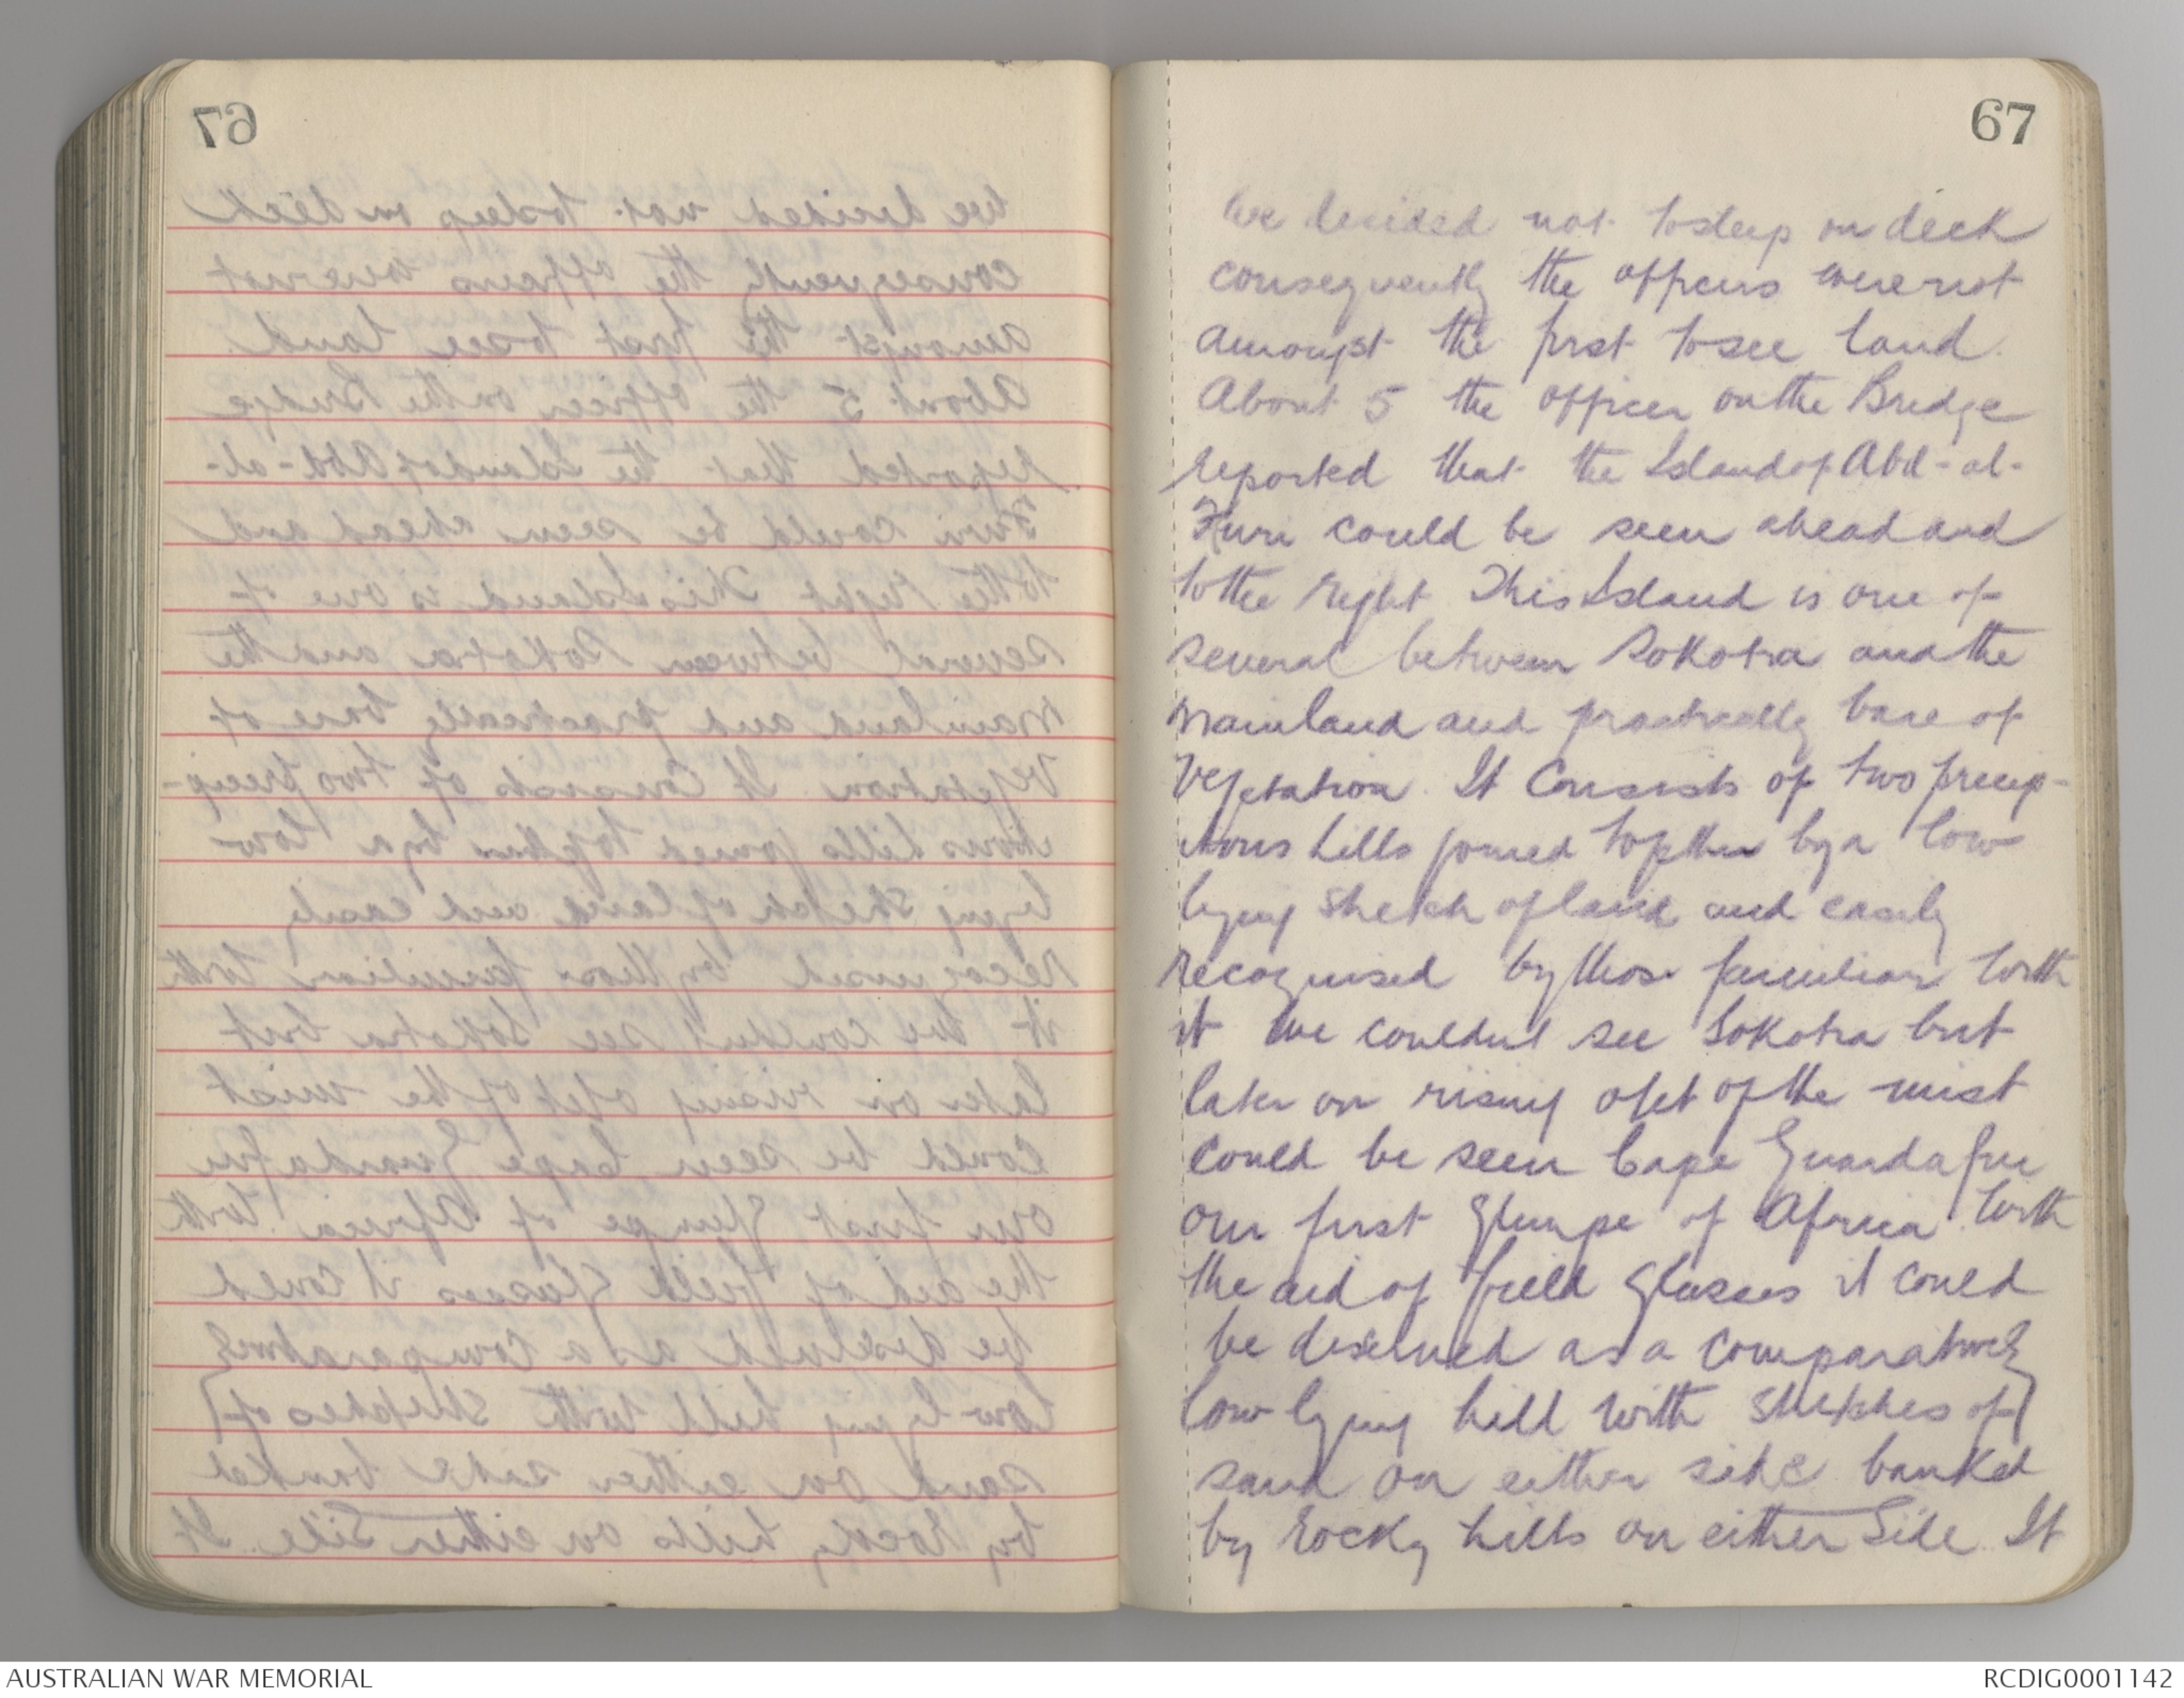 67
We decided not to sleep on deck
consequently the officers were not
amongst the first to see land.
About 5 the officer on the Bridge
reported that the Island of Abd-al-
Kuri could be seen ahead and
to the right This Island is one of
several between Sokotra and the
mainland and practically bare of
vegetation. It Consists of two precip-
itous hills joined together by a low
lying stretch of land and easily
recognised by those familiar with
it We couldnt see Sokotra but
later on rising out of the mist
could be seen Cape Guardafui
our first glimpse of Africa. With
the aid of field glasses it could
be discerned as a comparatively
low lying hill with stretches of
sand on either side banked
by rocky hills on either side. It
AUSTRALIAN WAR MEMORIAL
RCDIG0001142